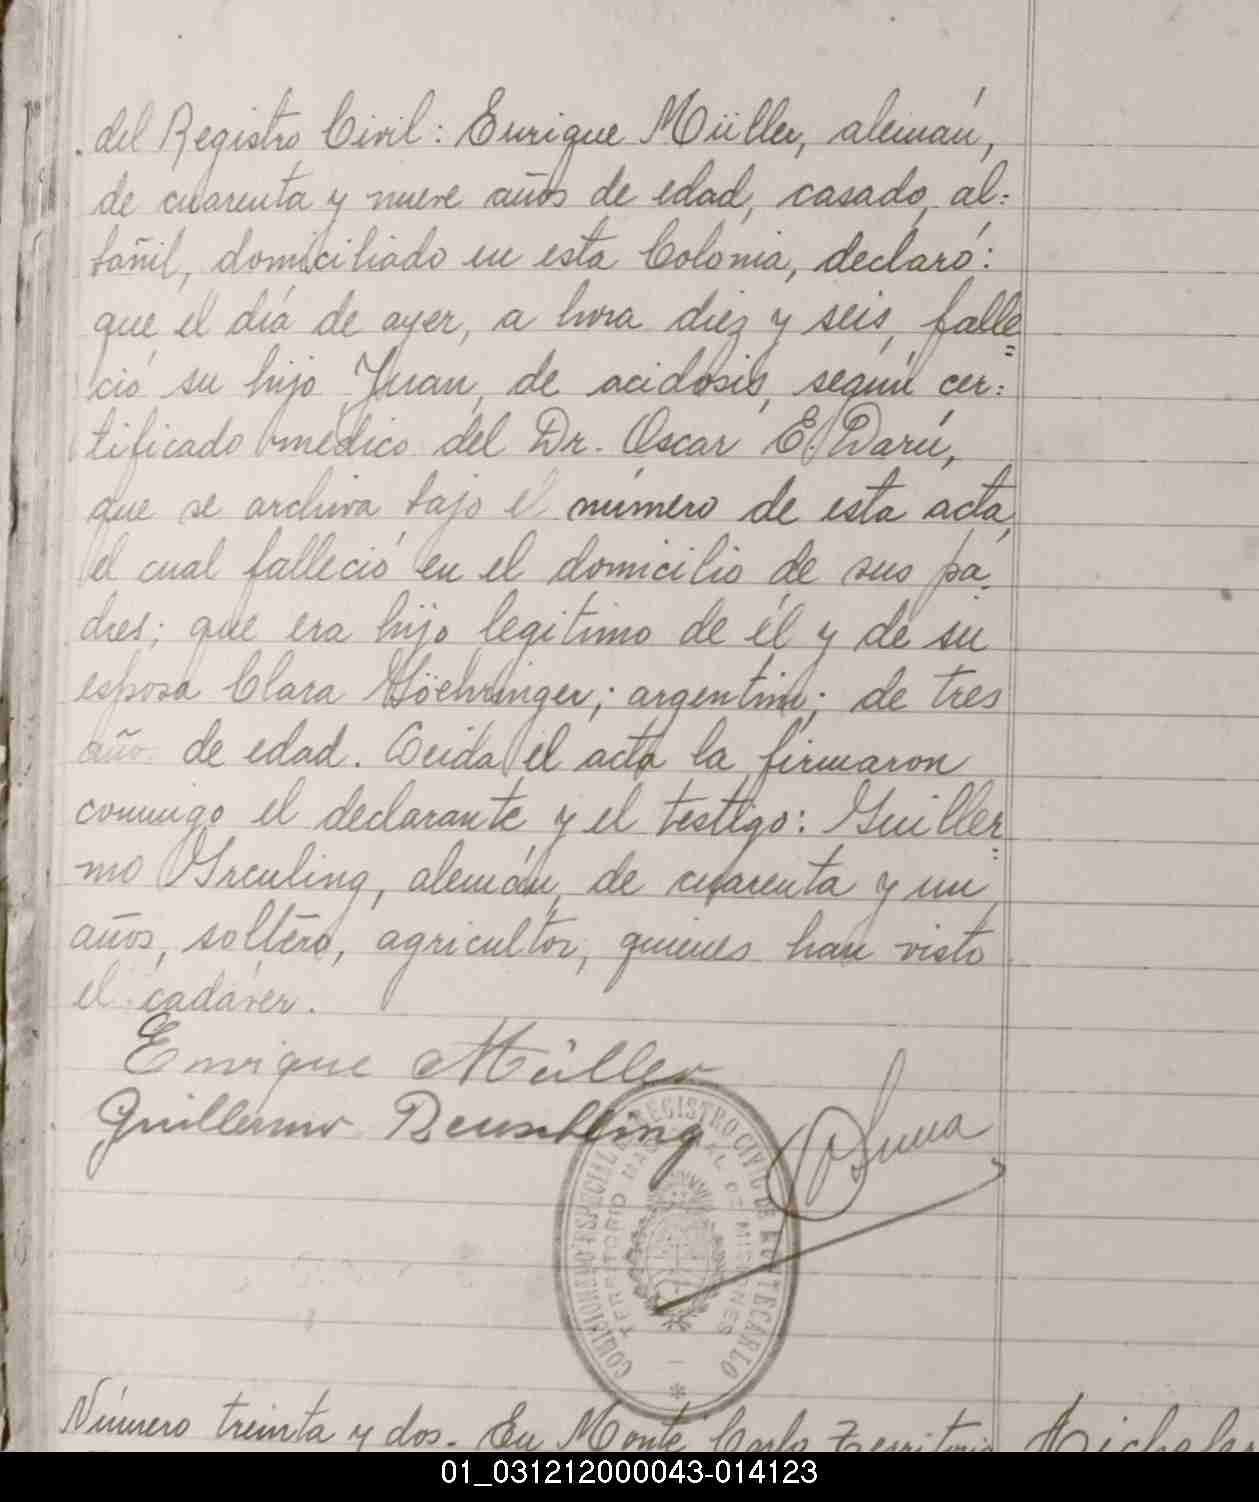 del Registro Civil: Enrique Müller, alemán,
de cuarenta y nueve años de edad, casado, al=
bañil, domiciliado en esta Colonia, declaró:
que el día de ayer, a hora diez y seis, falle=
ció su hijo Juan, de acidosis, según cer=
tificado médico del Dr. Oscar E. Darú,
que se archiva bajo el número de esta acta,
el cual falleció en el domicilio de sus pa=
dres; que era hijo legítimo de él y de su
esposa Clara Göehringer; argentino; de tres
año de edad. Leida el acta la firmaron
conmigo el declarante y el testigo: Guiller=
mo, alemán, de cuarenta y un
años, soltero, agricultor, quienes han visto
el cadáver.
Enrique Müller
Guillermo
COMISIONADO ESPECIAL REGISTRO CIVIL DE MONTECARLO
TERRITORIO NACIONAL DE MISIONES
Número treinta y dos. En Monte Carlo Territorio
01_031212000043-014123